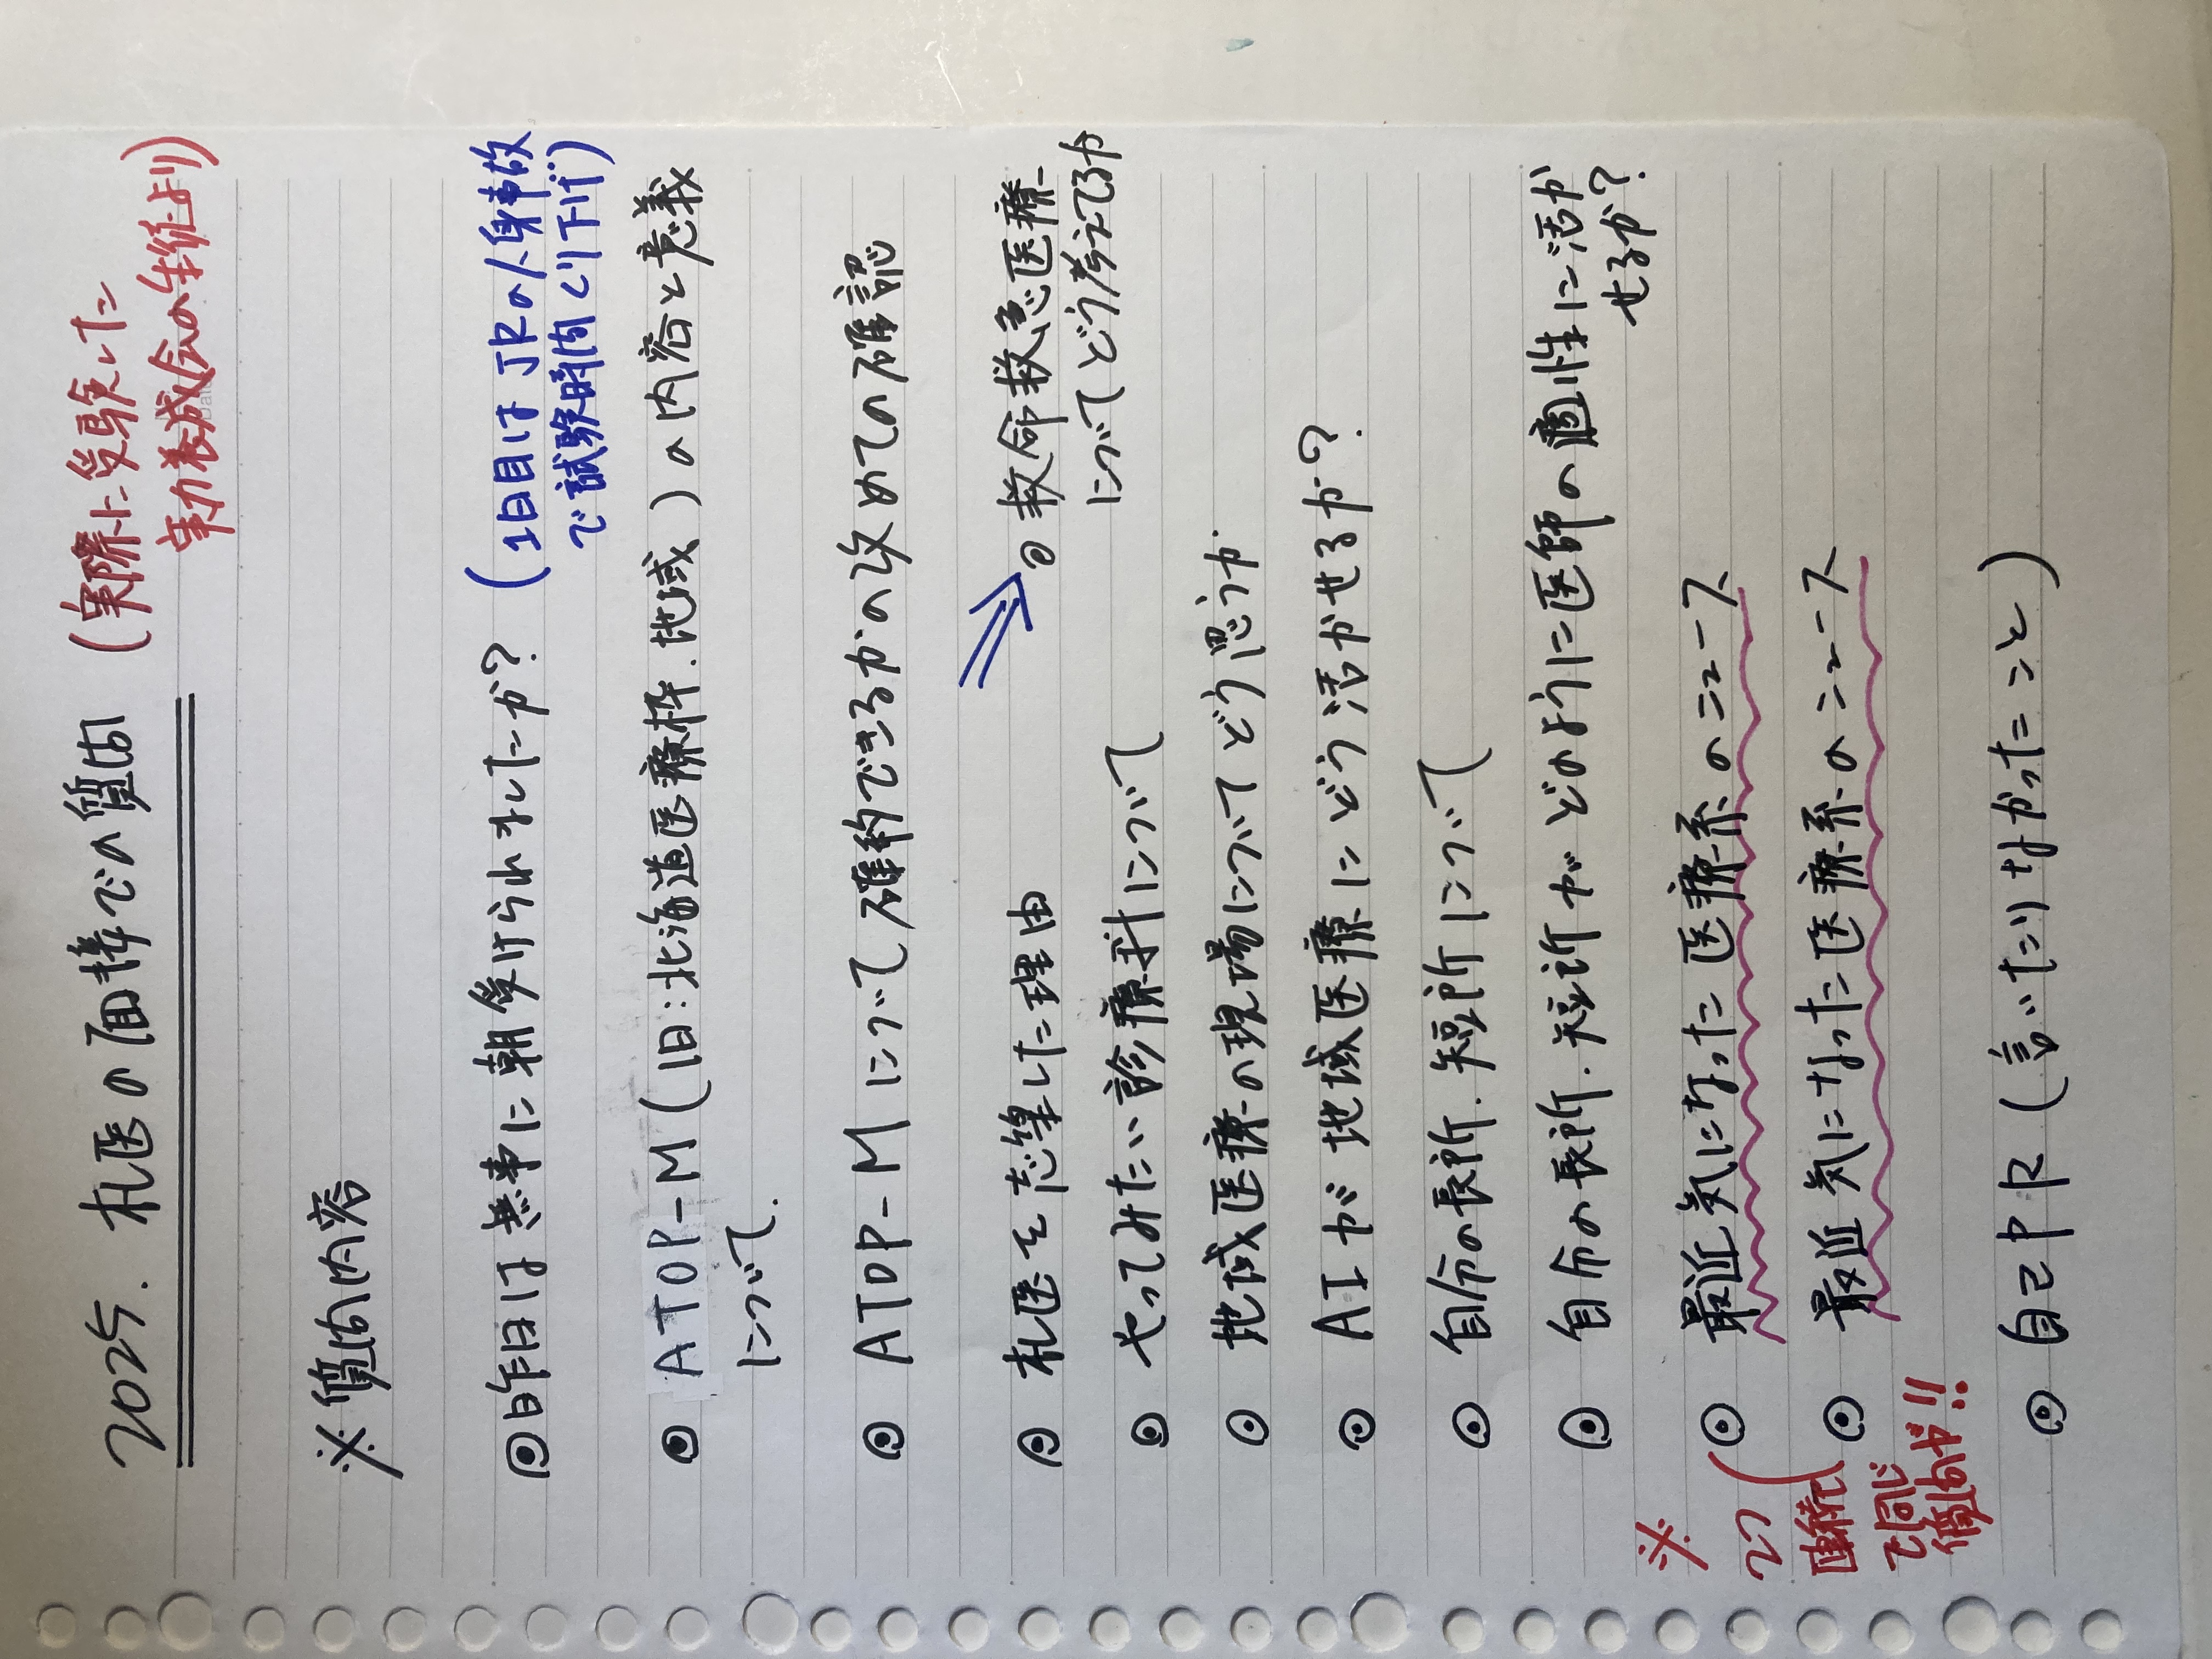 2025. 札医の面接での質問 (実際に受験した
実力養成会の生徒より)
※質問内容
◎昨日は無事に朝受けられましたか? (1日目はJRの人身事故
で試験時間くり下げ)
◎ ATOP-M (旧:北海道医療枠.地域) の内容と意義
について.
◎ ATOP-Mについて確約できるかの改めての確認
◎ 札医を志望した理由
◎救命救急医療
についてどう考えてるか
◎ やってみたい診療科について
◎ 地域医療の現場についてどう思うか.
◎ AIが地域医療にどう活かせるか?.
◎ 自分の長所.短所について
◎ 自分の長所.短所がどのように医師の適性に活か
せるか?
※
2つ
◎ 最近気になった医療系のニュース
連続
で同じ
質問が!!
◎ 最近気になった医療系のニュース
◎ 自己PR (言いたりなかったこと)